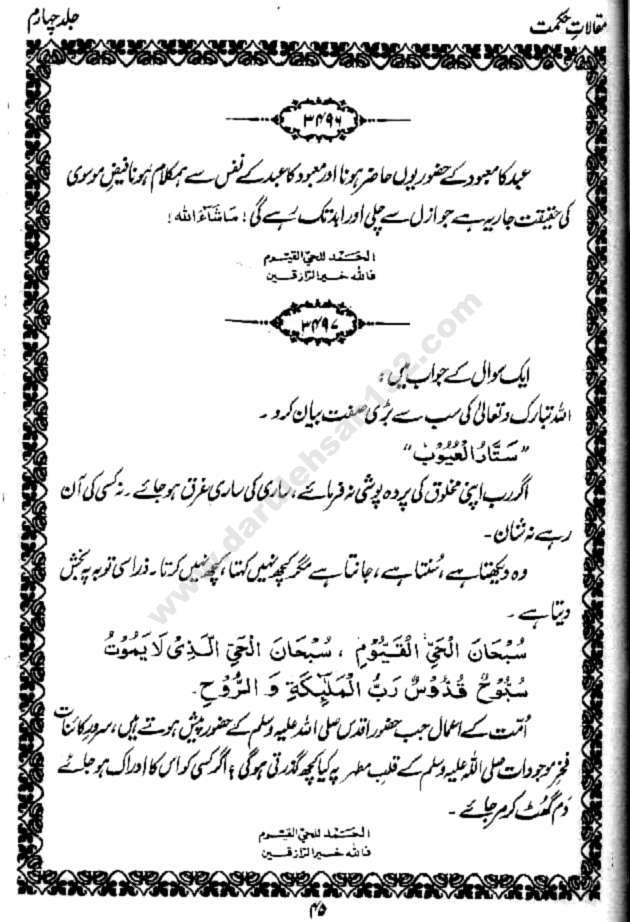 مقالاتِ حکمت
جلد چہارم
۳۴۹۶
عبد کا معبود کے حضور یوں حاضر ہونا اور معبود کا عبد کے نفس سے ہمکلام ہونا فیضِ موسوی
کی حقیقت جاریہ ہے جو ازل سے چلی اور ابد تک رہے گی! مَاشَآءَ اللہ!
الحَمْد للحیّ القیّوم
فاللہ خیر الرّازقین
۳۴۹۷
ایک سوال کے جواب میں:
اللہ تبارک و تعالیٰ کی سب سے بڑی صفت بیان کرو۔
"سَتَّارُ الْعُیُوْب"
اگر رب اپنی مخلوق کی پردہ پوشی نہ فرمائے، ساری کی ساری غرق ہو جائے۔ نہ کسی کی آن
رہے نہ شان۔
وہ دیکھتا ہے، سُنتا ہے، جانتا ہے مگر کچھ نہیں کہتا، کچھ نہیں کرتا۔ ذرا سی توبہ پہ بخش
دیتا ہے۔
سُبْحَانَ الْحَیِّ الْقَیُّوْمِ ، سُبْحَانَ الْحَیِّ الَّذِیْ لَا یَمُوْتُ
سُبُّوْحٌ قُدُّوْسٌ رَبُّ الْمَلٰٓئِکَةِ وَ الرُّوْحِ۔
اُمّت کے اعمال جب حضور اقدس صلی اللہ علیہ وسلم کے حضور پیش ہوتے ہیں، سرورِ کائنات
فخرِ موجودات صلی اللہ علیہ وسلم کے قلبِ مطہر پہ کیا کچھ گذرتی ہوگی؟ اگر کسی کو اس کا ادراک ہو جائے
دَم گھُٹ کر مر جائے۔
الحَمْد للحیّ القیّوم
فاللہ خیر الرّازقین
۴۵
www.darulehsan132.com